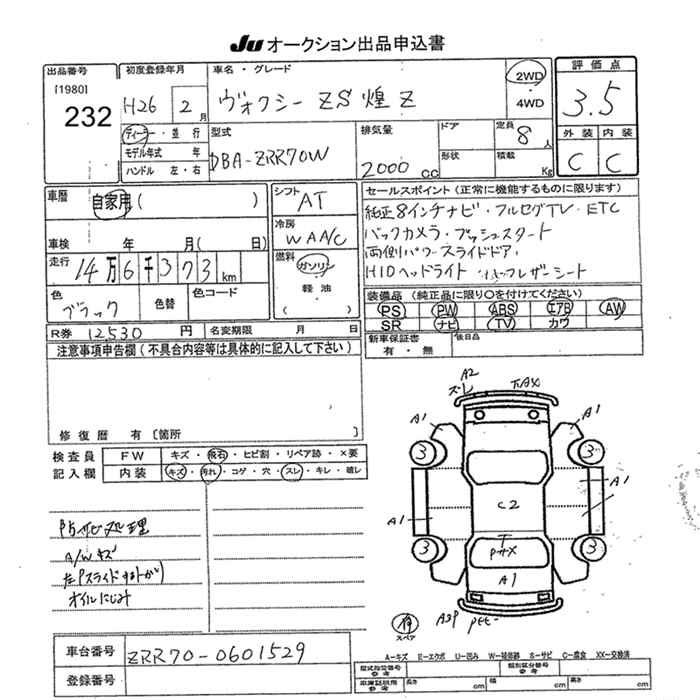 Ju オークション出品申込書
出品番号
[1980]
232
初度登録年月
H26 2 月
ディーラー・並行
モデル年式 年
ハンドル 左・右
車名・グレード
ヴォクシー ZS 煌Z
2WD
4WD
型式
DBA-ZRR70W
排気量
2000 cc
ドア
形状
定員 8 人
積載 Kg
評価点
3.5
外装 内装
C C
車歴 自家用( )
車検 年 月( 日)
走行 14万6千373 km
色 ブラック 色替 色コード
R券 12,530 円 名変期限 月 日
シフト AT
冷房 WAA/C
燃料 ガソリン
軽油
( )
セールスポイント(正常に機能するものに限ります)
純正8インチナビ・フルセグTV・ETC
バックカメラ・プッシュスタート
両側パワースライドドア
HIDヘッドライト レザーシート
装備品(純正品に限り○を付けてください)
PS PW ABS エアB AW
SR ナビ TV カワ
新車保証書 有・無
後日品
注意事項申告欄(不具合内容等は具体的に記入して下さい)
修復歴 有 [箇所
検査員 FW キズ・飛石・ヒビ割・リペア跡・×要
記入欄 内装 キズ・汚れ・コゲ・穴・スレ・キレ・破レ
防サビ処理
A/Wキズ
左Pスライド
オイルにじみ
A2
ズレ
A1 A1
3 3
A1
C2
A1
3 3
A1
スペア
車台番号 ZRR70-0601529
登録番号
A-キズ E-エクボ U-凹み W-補修跡 S-サビ C-腐食 XX-交換済
型式指定番号 参考
類別区分番号 参考
車庫証明用 参考
長さ cm 幅 cm 高さ cm